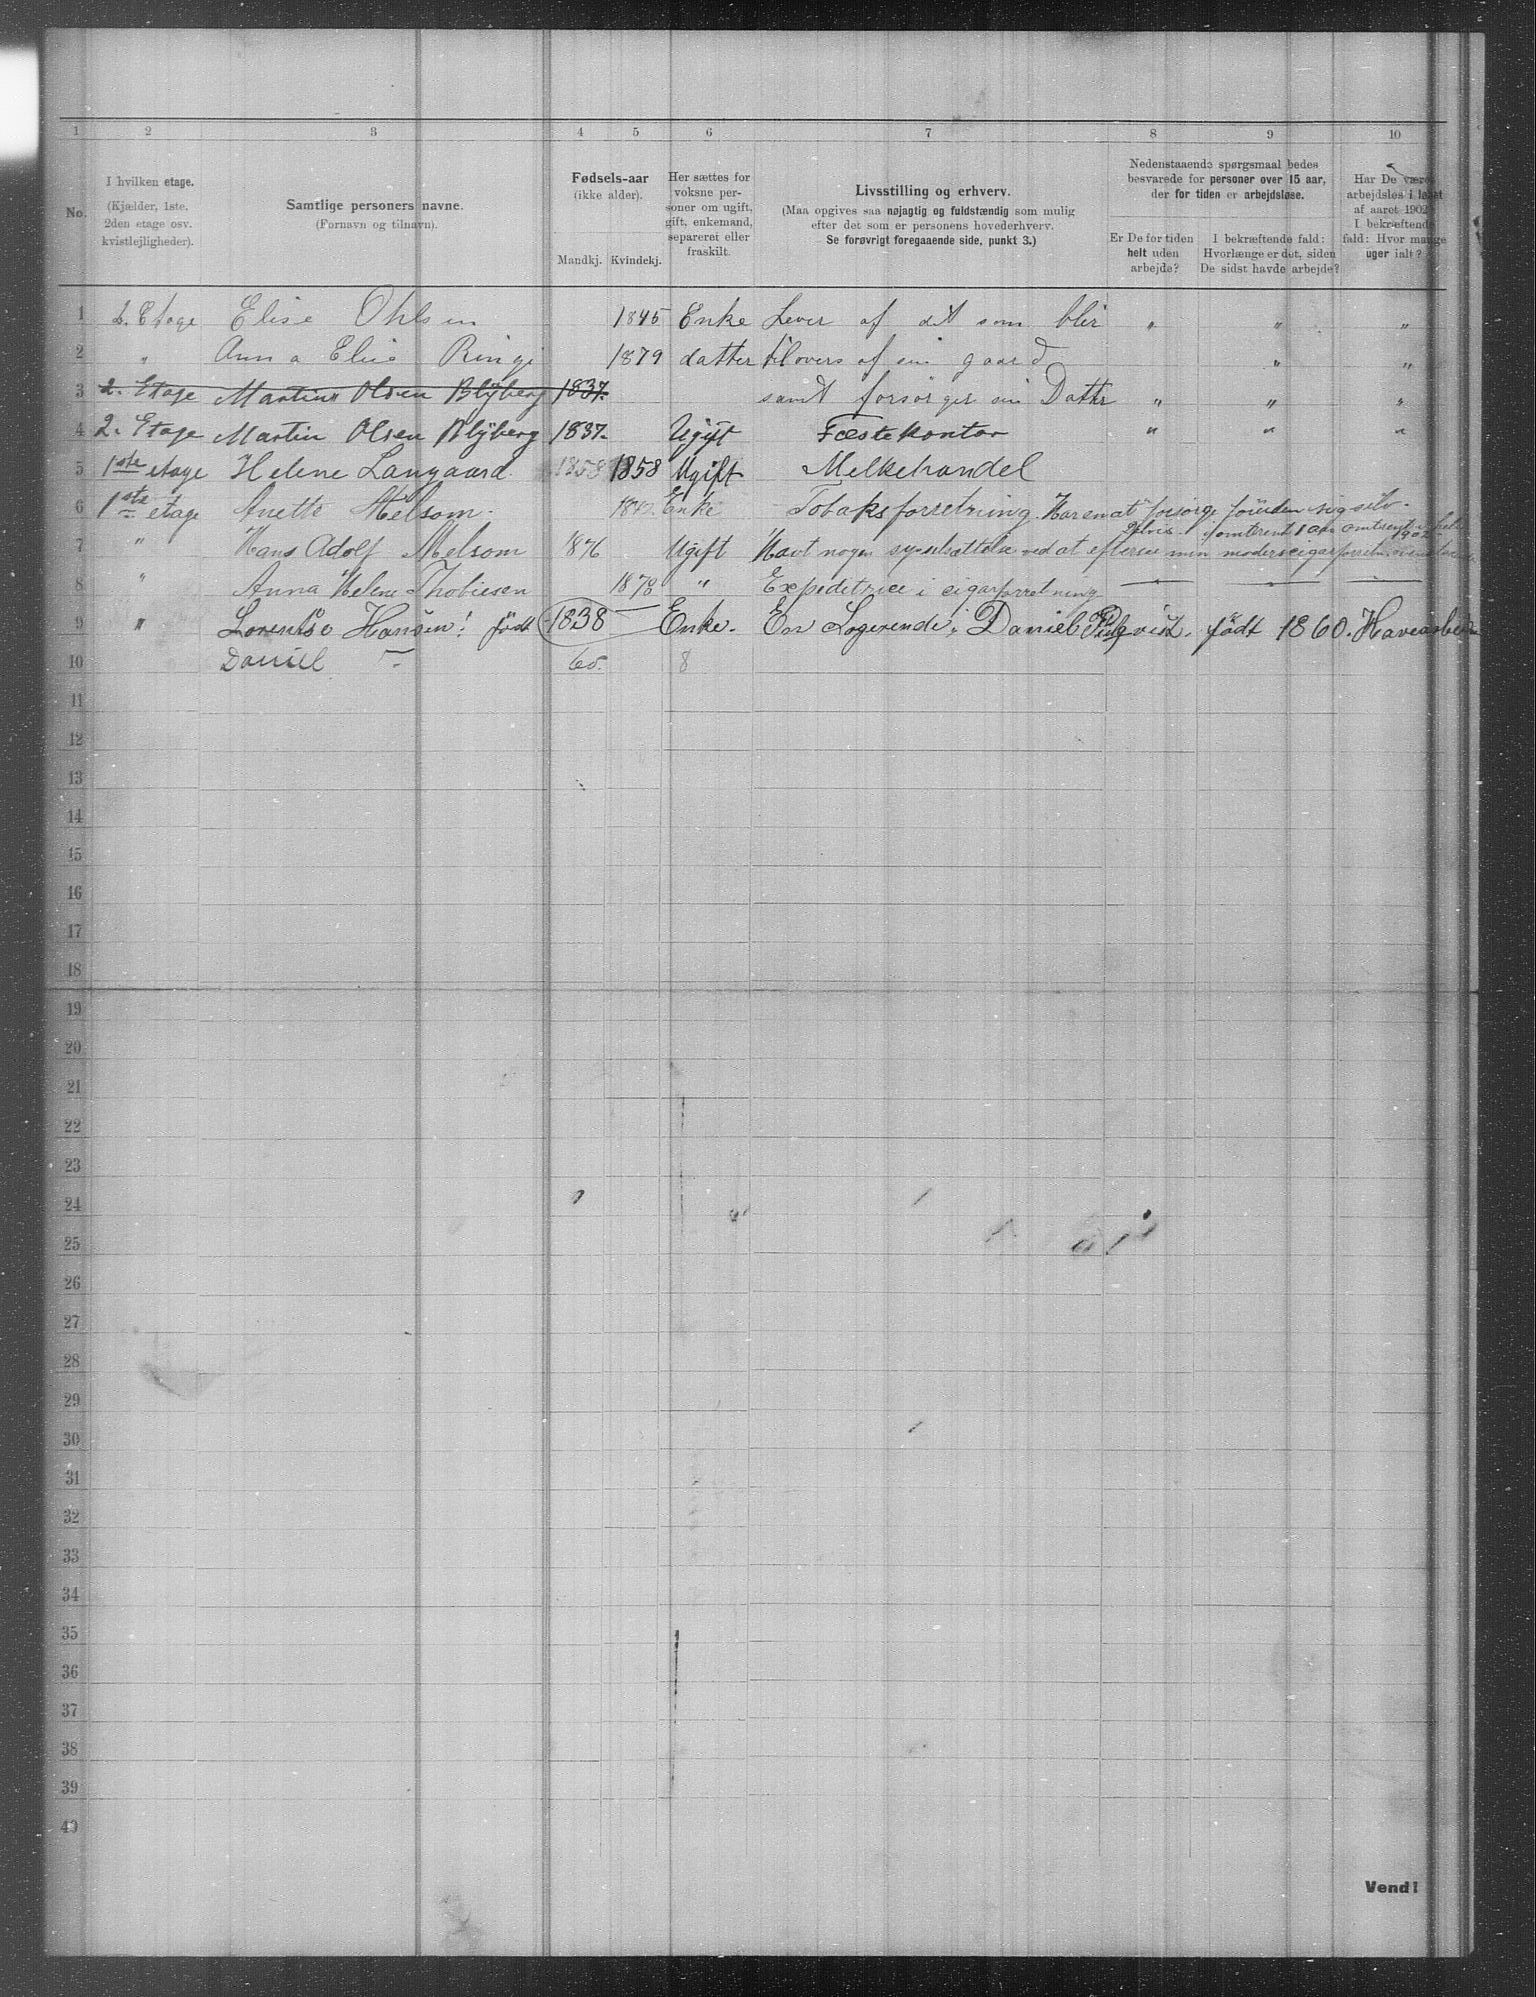 1 2 3 4 5 6 7 8 9 10
No.
I hvilken etage.
(Kjælder, 1ste.
2den etage osv.
kvistlejligheder).
Samtlige personers navne.
(Fornavn og tilnavn).
Fødsels-aar
(ikke alder).
Mandkj. Kvindekj.
Her sættes for
voksne per-
soner om ugift,
gift, enkemand,
separeret eller
fraskilt.
Livsstilling og erhverv.
(Maa opgives saa nøjagtig og fuldstændig som mulig
efter det som er personens hovederhverv.
Se forøvrigt foregaaende side, punkt 3.)
Nedenstaaende spørgsmaal bedes
besvarede for personer over 15 aar,
der for tiden er arbejdsløse.
Er De for tiden
helt uden
arbejde?
I bekræftende fald:
Hvorlænge er det, siden
De sidst havde arbejde?
Har De været
arbejdsløs i løbet
af aaret 1902
I bekræftende
fald: Hvor mange
uger ialt?
1 2. Etage Elise Ohlsen 1845 Enke Lever af det som blir " " "
2 " Anna Elise Ringi 1879 datter tilovers af sin gaard " "
3 2. Etage Martin Olsen Blyberg 1837. samt forsørger sin Datter " " "
4 2. Etage Martin Olsen Blyberg 1837. Ugift Fæstekontor " " "
5 1ste etage Helene Langaard 1858 1858 Ugift Melkehandel
6 1ste etage Anette Melsom. 1842. Enke Tobaksforretning. Har en at forsørge foruden sig selv.
7 " Hans Adolf Melsom 1876 Ugift Havt nogen sysselsættelse ved at efterse min moders cigarforretn.
omtrent 1 aar omtrent 1902
8 " Anna Helene Thobiesen 1878 " Expeditrice i cigarforretning
9 " Lorentse Hansen! født 1838 Enke. En Logerende, Daniel født 1860. Havearbeider
10 Daniel 60. 8
11
12
13
14
15
16
17
18
19
20
21
22
23
24
25
26
27
28
29
30
31
32
33
34
35
36
37
38
39
40
Vend!